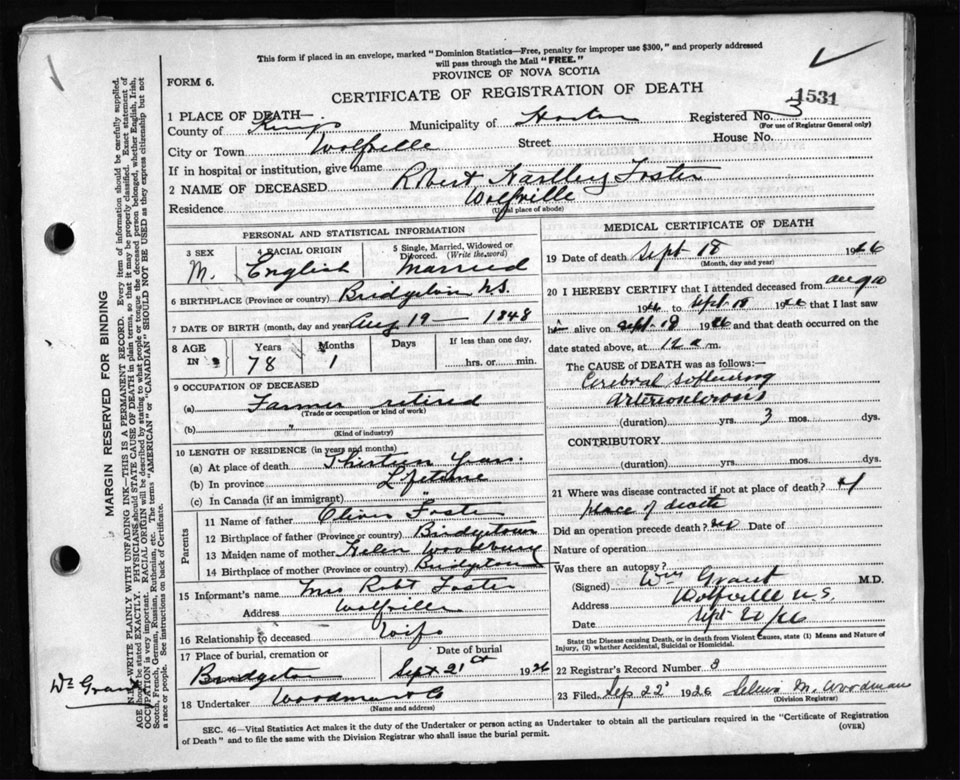 This form if placed in an envelope, marked "Dominion Statistics—Free, penalty for improper use $300," and properly addressed
will pass through the Mail "FREE."
PROVINCE OF NOVA SCOTIA
FORM 6.
CERTIFICATE OF REGISTRATION OF DEATH
1531
1 PLACE OF DEATH—
County of Kings Municipality of Horton Registered No. 3
(For use of Registrar General only)
City or Town Wolfville Street House No.
If in hospital or institution, give name
2 NAME OF DECEASED Robert Foster
Residence Wolfville
(Usual place of abode)
PERSONAL AND STATISTICAL INFORMATION
3 SEX M. 4 RACIAL ORIGIN English 5 Single, Married, Widowed or Divorced. (Write the word) Married
6 BIRTHPLACE (Province or country) Bridgetown N.S.
7 DATE OF BIRTH (month, day and year) Aug 19 — 1848
8 AGE IN Years 78 Months 1 Days If less than one day, hrs. or min.
9 OCCUPATION OF DECEASED
(a) Farmer retired
(Trade or occupation or kind of work)
(b) "
(Kind of industry)
10 LENGTH OF RESIDENCE (in years and months)
(a) At place of death Thirteen Years.
(b) In province Lifetime
(c) In Canada (if an immigrant)
Parents
11 Name of father Oliver Foster
12 Birthplace of father (Province or country) Bridgetown
13 Maiden name of mother Helen Woodbury
14 Birthplace of mother (Province or country) Bridgetown
15 Informant's name Mrs Robt Foster
Address Wolfville
16 Relationship to deceased Wife
17 Place of burial, cremation or Date of burial
Bridgetown Sept 21st 1926
18 Undertaker Woodman & Co
(Name and address)
MEDICAL CERTIFICATE OF DEATH
19 Date of death Sept 18 1926
(Month, day and year)
20 I HEREBY CERTIFY that I attended deceased from Aug
1926 to Sept 18 1926 that I last saw
h alive on Sept 18 1926 and that death occurred on
date stated above, at 12 a m.
The CAUSE of DEATH was as follows:—
Cerebral softening
Arteriosclerosis
(duration) yrs. 3 mos. dys.
CONTRIBUTORY
(duration) yrs. mos. dys.
21 Where was disease contracted if not at place of death? at
place of death
Did an operation precede death? no Date of
Nature of operation
Was there an autopsy?
(Signed) Wm Grant M.D.
Address Wolfville N.S.
Date Sept 20/26
State the Disease causing Death, or in death from Violent Causes, state (1) Means and Nature of Injury, (2) whether Accidental, Suicidal or Homicidal.
22 Registrar's Record Number 3
23 Filed Sep. 22 1926 M. Woodman
(Division Registrar)
SEC. 46—Vital Statistics Act makes it the duty of the Undertaker or person acting as Undertaker to obtain all the particulars required in the "Certificate of Registration
of Death" and to file the same with the Division Registrar who shall issue the burial permit.
(OVER)
MARGIN RESERVED FOR BINDING
N.B.—WRITE PLAINLY WITH UNFADING INK—THIS IS A PERMANENT RECORD. Every item of information should be carefully supplied.
AGE should be stated EXACTLY. PHYSICIANS should STATE CAUSE OF DEATH in plain terms, so that it may be properly classified. Exact statement of
OCCUPATION is very important. RACIAL ORIGIN will be described by stating to what people or tongue the deceased person belonged, whether English, Irish,
Scotch, French, German, Russian, Ruthenian, etc. The terms "AMERICAN" or "CANADIAN" SHOULD NOT BE USED as they express citizenship but not
a race or people. See instructions on back of Certificate.
Dr Grant